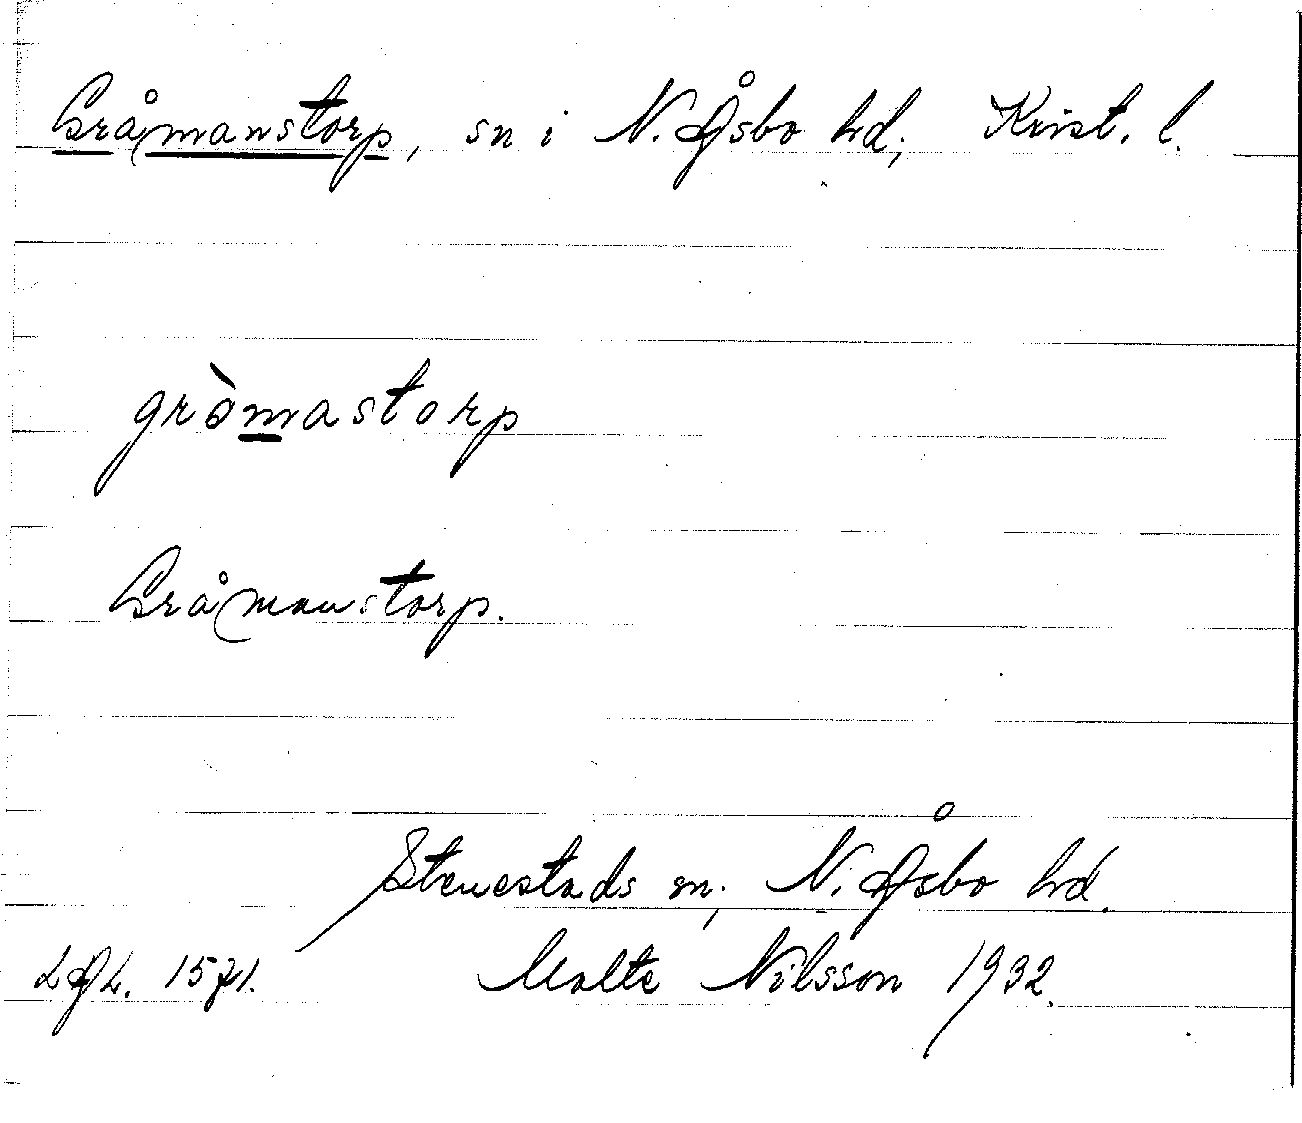 Gråmanstorp, sn i N. Åsbo hd; Krist. l.
gròmastorp
Gråmanstorp.
Stenestads sn; N. Åsbo hd.
LAL. 1571. Malte Nilsson 1932.